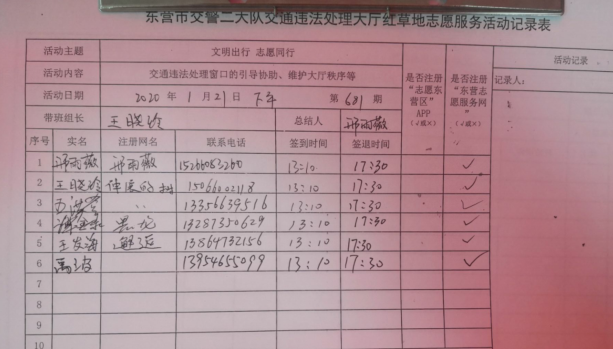 东营市交警二大队交通违法处理大厅红草地志愿服务活动记录表
活动主题 文明出行 志愿同行
活动内容 交通违法处理窗口的引导协助、维护大厅秩序等
活动日期 2020 年 1 月 21 日 下午 第 681 期
带班组长 王晓玲 总结人 邢雨薇
是否注册“志愿东营区”APP（√或×）
是否注册“东营志愿服务网”（√或×）
活动记录
记录人：
序号 实名 注册网名 联系电话 签到时间 签退时间
1 邢雨薇 邢雨薇 15266083260 13:10 17:30 √
2 王晓玲 15066002118 13:10 17:30 √
3 13356639516 13:10 17:30 √
4 黑龙 13287350629 13:10 17:30 √
5 邂逅 13864732156 13:10 17:30 √
6 13954655099 13:10 17:30 √
7
8
9
10